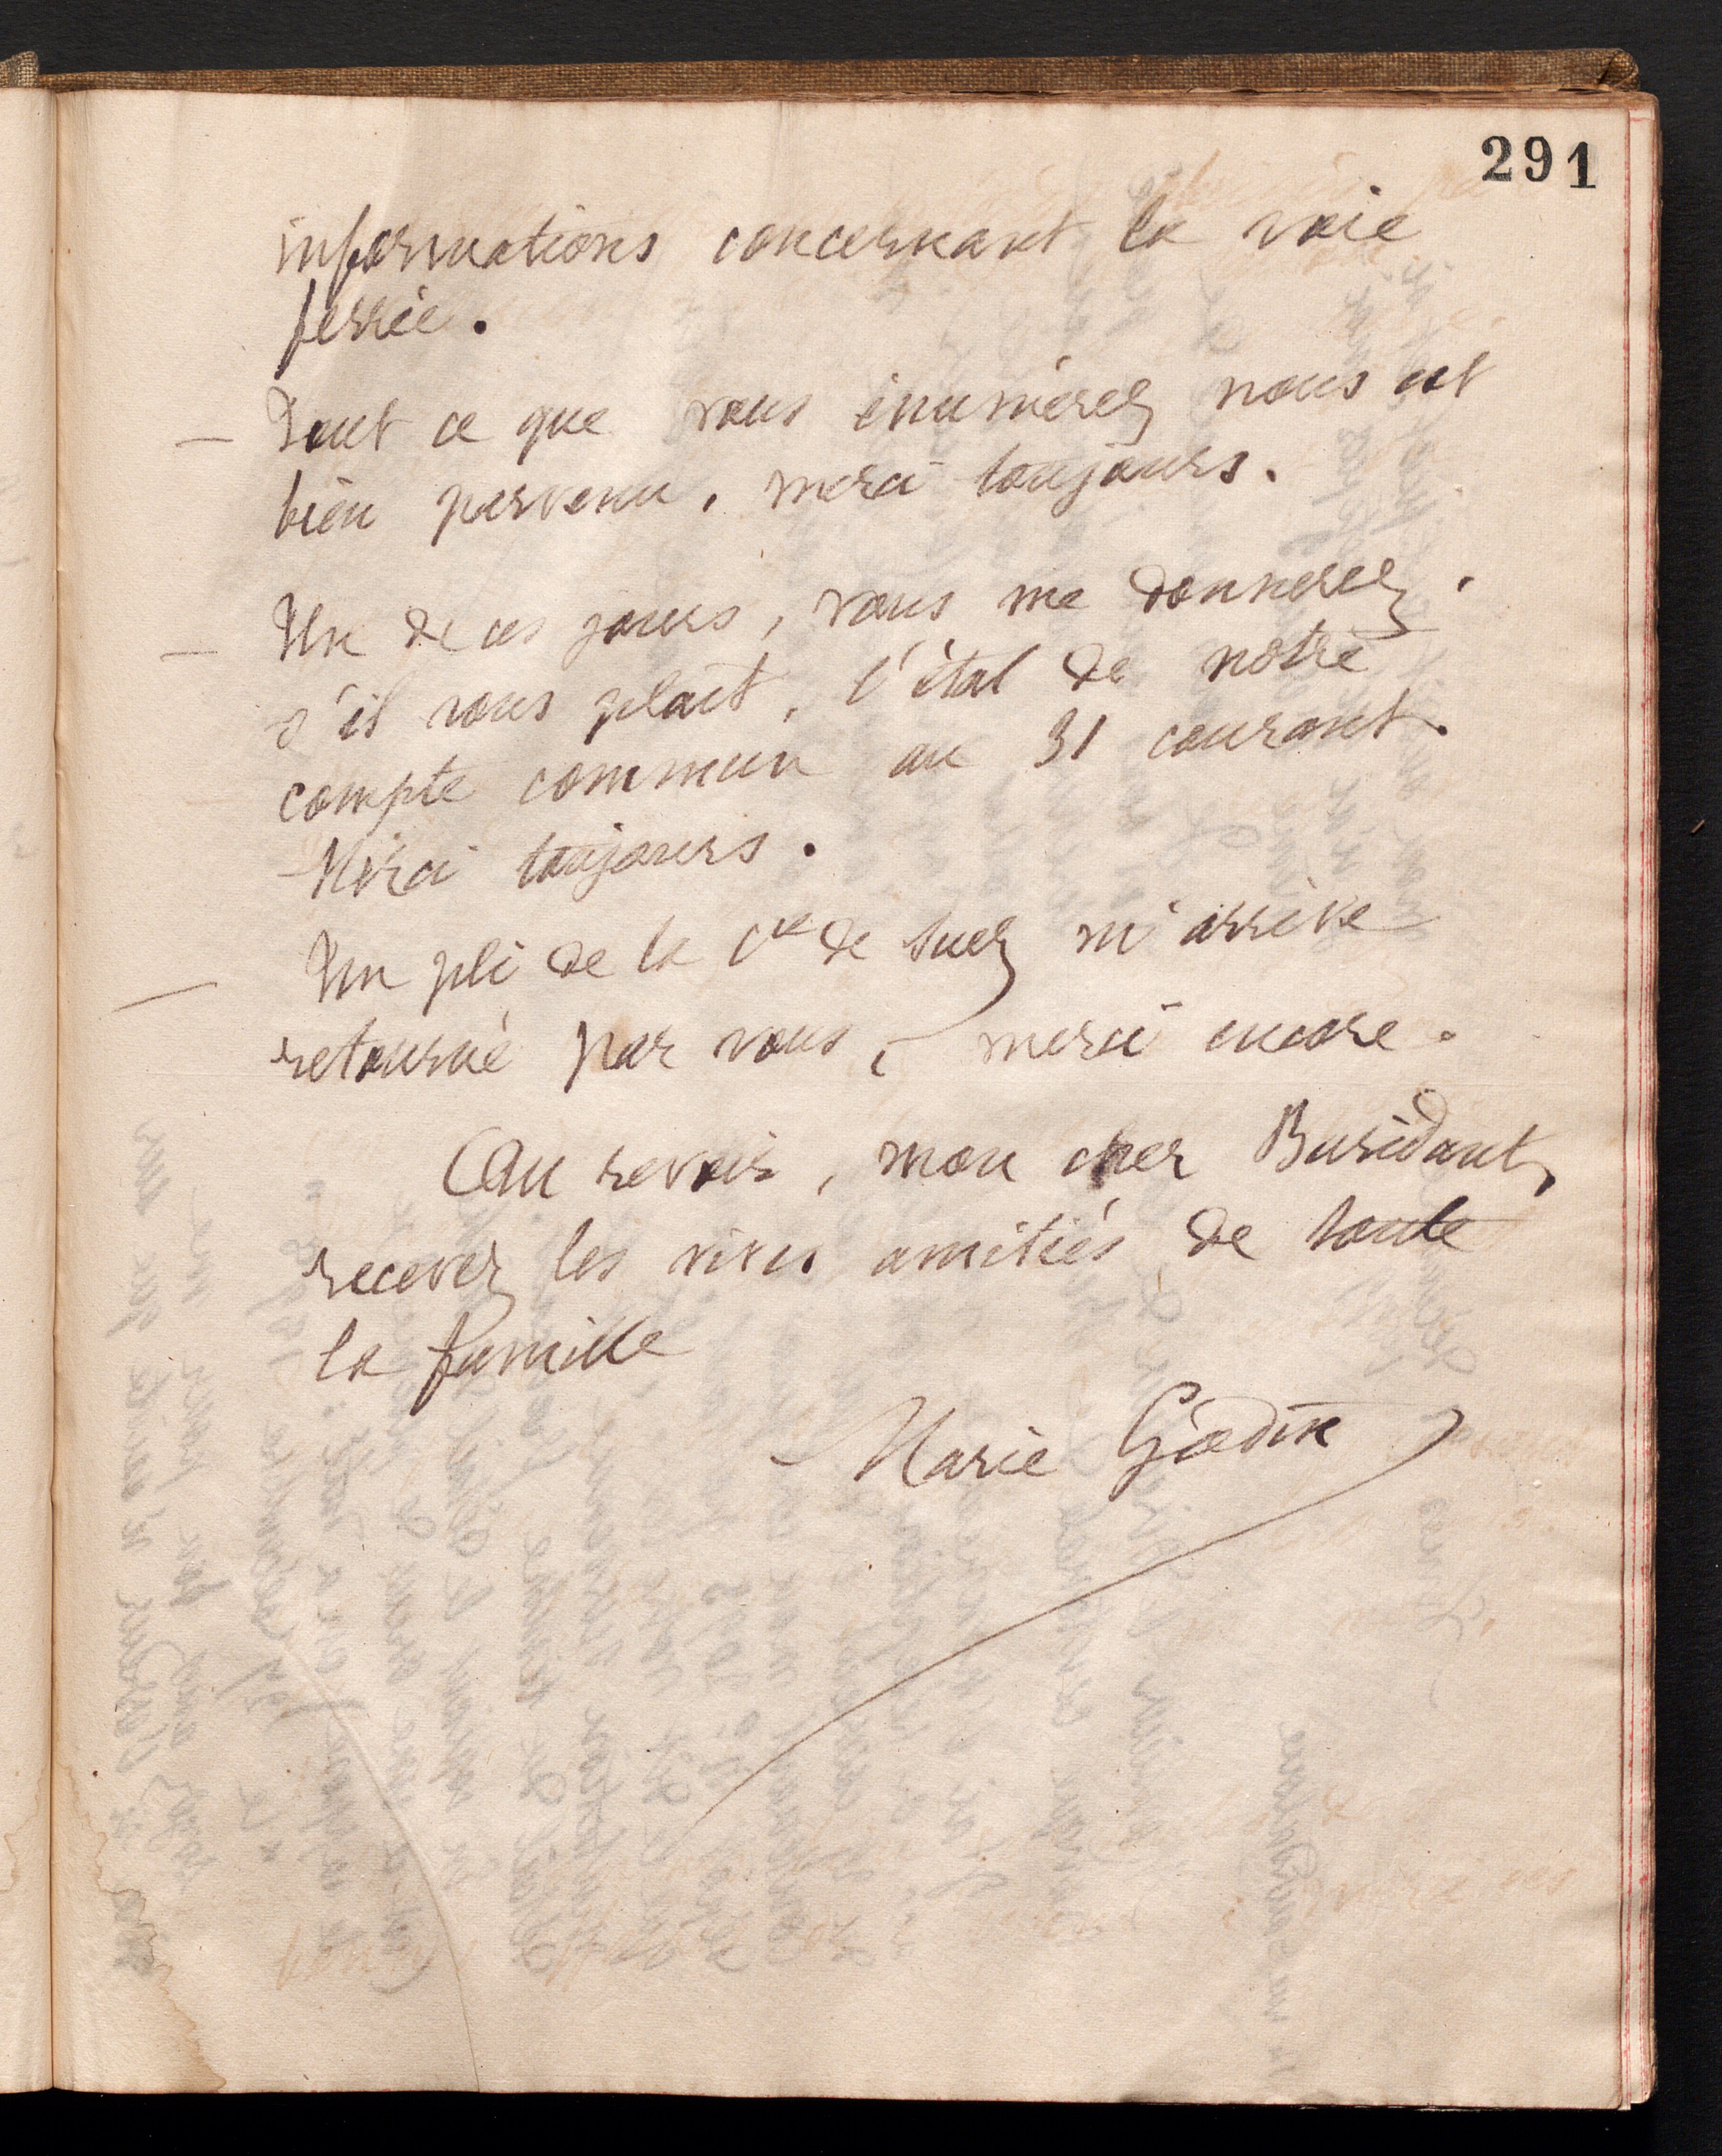 291
informations concernant la voie
ferrée.
— Tout ce que vous énumérez nous est
bien parvenu, merci toujours.
— Un de ces jours, vous me donnerez,
s'il vous plait, l'état de notre
compte commun au 31 courant.
Merci toujours.
— Un pli de la Cie de Suez m'arrive
retourné par vous, merci encore.
Au revoir, mon cher Buridant,
recevez les vives amitiés de toute
la famille
Marie Godin